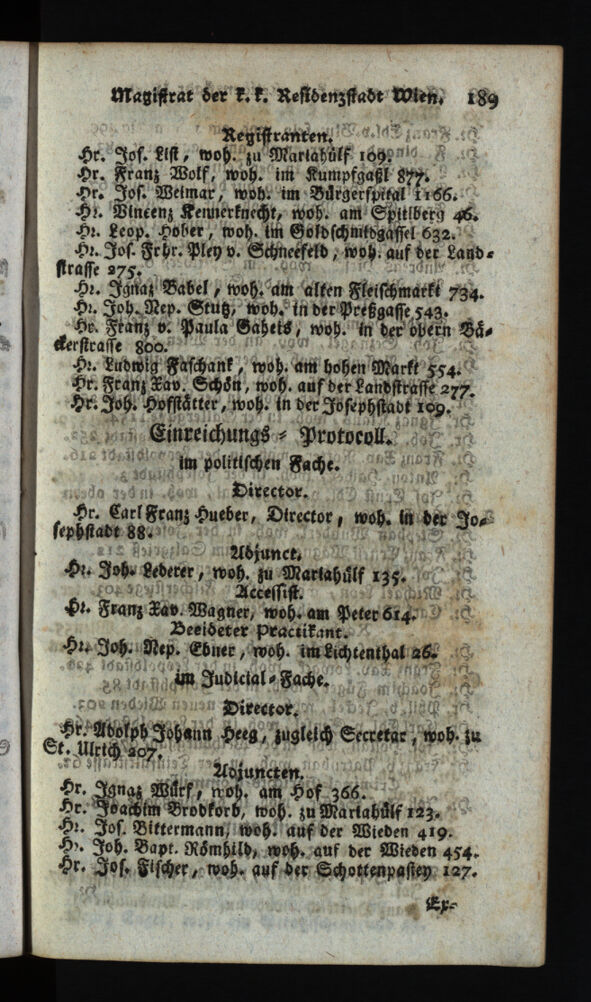 Magistrat der k. k. Residenzstadt Wien. 189
Registranten.
Hr. Jos. List, woh. zu Mariahülf 109.
Hr. Franz Wolf, woh. im Kumpfgaßl 877.
Hr. Jos. Weimar, woh. im Bürgerspital 1166.
Hr. Vincenz Kennerknecht, woh. am Spitlberg 46.
Hr. Leop. Hober, woh. im Goldschmidgassel 632.
Hr. Jos. Frhr. Pley v. Schneefeld, woh. auf der Land-
strasse 275.
Hr. Ignaz Babel, woh. am alten Fleischmarkt 734.
Hr. Joh. Nep. Stutz, woh. in der Preßgasse 543.
Hr. Franz v. Paula Gaheis, woh. in der obern Bä-
ckerstrasse 800.
Hr. Ludwig Faschank, woh. am hohen Markt 554.
Hr. Franz Xav. Schön, woh. auf der Landstrasse 277.
Hr. Joh. Hofstätter, woh. in der Josephstadt 109.
Einreichungs-Protocoll.
im politischen Fache.
Director.
Hr. Carl Franz Hueber, Director, woh. in der Jo-
sephstadt 88.
Adjunct.
Hr. Joh. Lederer, woh. zu Mariahülf 135.
Accessist.
Hr. Franz Xav. Wagner, woh. am Peter 614.
Beeideter Practikant.
Hr. Joh. Nep. Ebner, woh. im Lichtenthal 26.
im Judicial-Fache.
Director.
Hr. Adolph Johann Heeg, zugleich Secretar, woh. zu
St. Ulrich 207.
Adjuncten.
Hr. Ignaz Würf, woh. am Hof 366.
Hr. Joachim Brodkorb, woh. zu Mariahülf 123.
Hr. Jos. Bittermann, woh. auf der Wieden 419.
Hr. Joh. Bapt. Römhild, woh. auf der Wieden 454.
Hr. Jos. Fischer, woh. auf der Schottenpastey 127.
Ex-